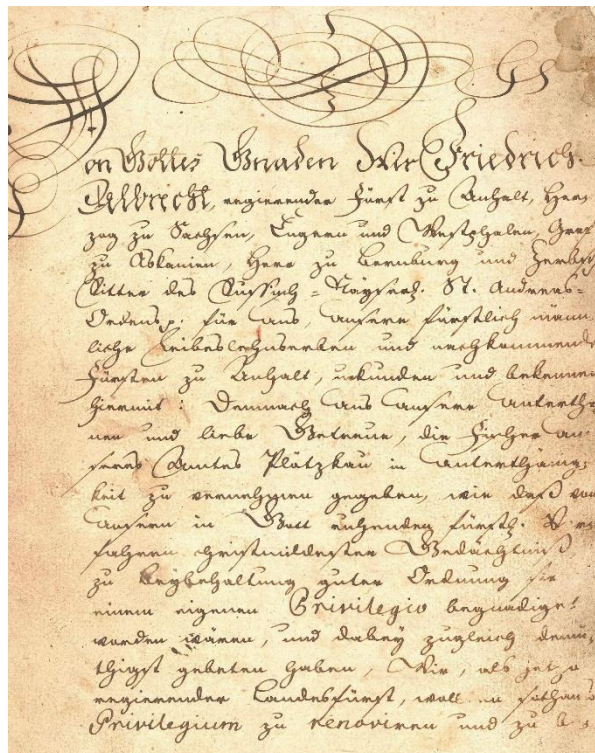 on Gottes Gnaden Wir Friedrich
Albrecht, regierender Fürst zu Anhalt, Her
zog zu Sachsen, Engern und Westphalen, Graf
zu Askanien, Herr zu Bernburg und Zerbst
Ritter des Russisch-Kayserl. St. Andreas-
Ordens p. für uns, unsere fürstlich männ
liche Leibeslehnserben und nachkommende
Fürsten zu Anhalt, urkunden und bekennen
hiermit: Demnach uns unsere unterth
nen und liebe Getreue, die Fischer un
seres Amtes Plötzkau in unterthänig
keit zu vernehmen gegeben, wie daß von
unsern in Gott ruhenden fürstl. Vor
fahren christmildester Gedächtniß
zu Beybehaltung guter Ordnung sie
einem eigenen Privilegio begnadiget
worden wären, und dabey zugleich demü
thigst gebeten haben, Wir, als jetzo
regierender Landesfürst, wollen sothan
Privilegium zu renoviren und zu